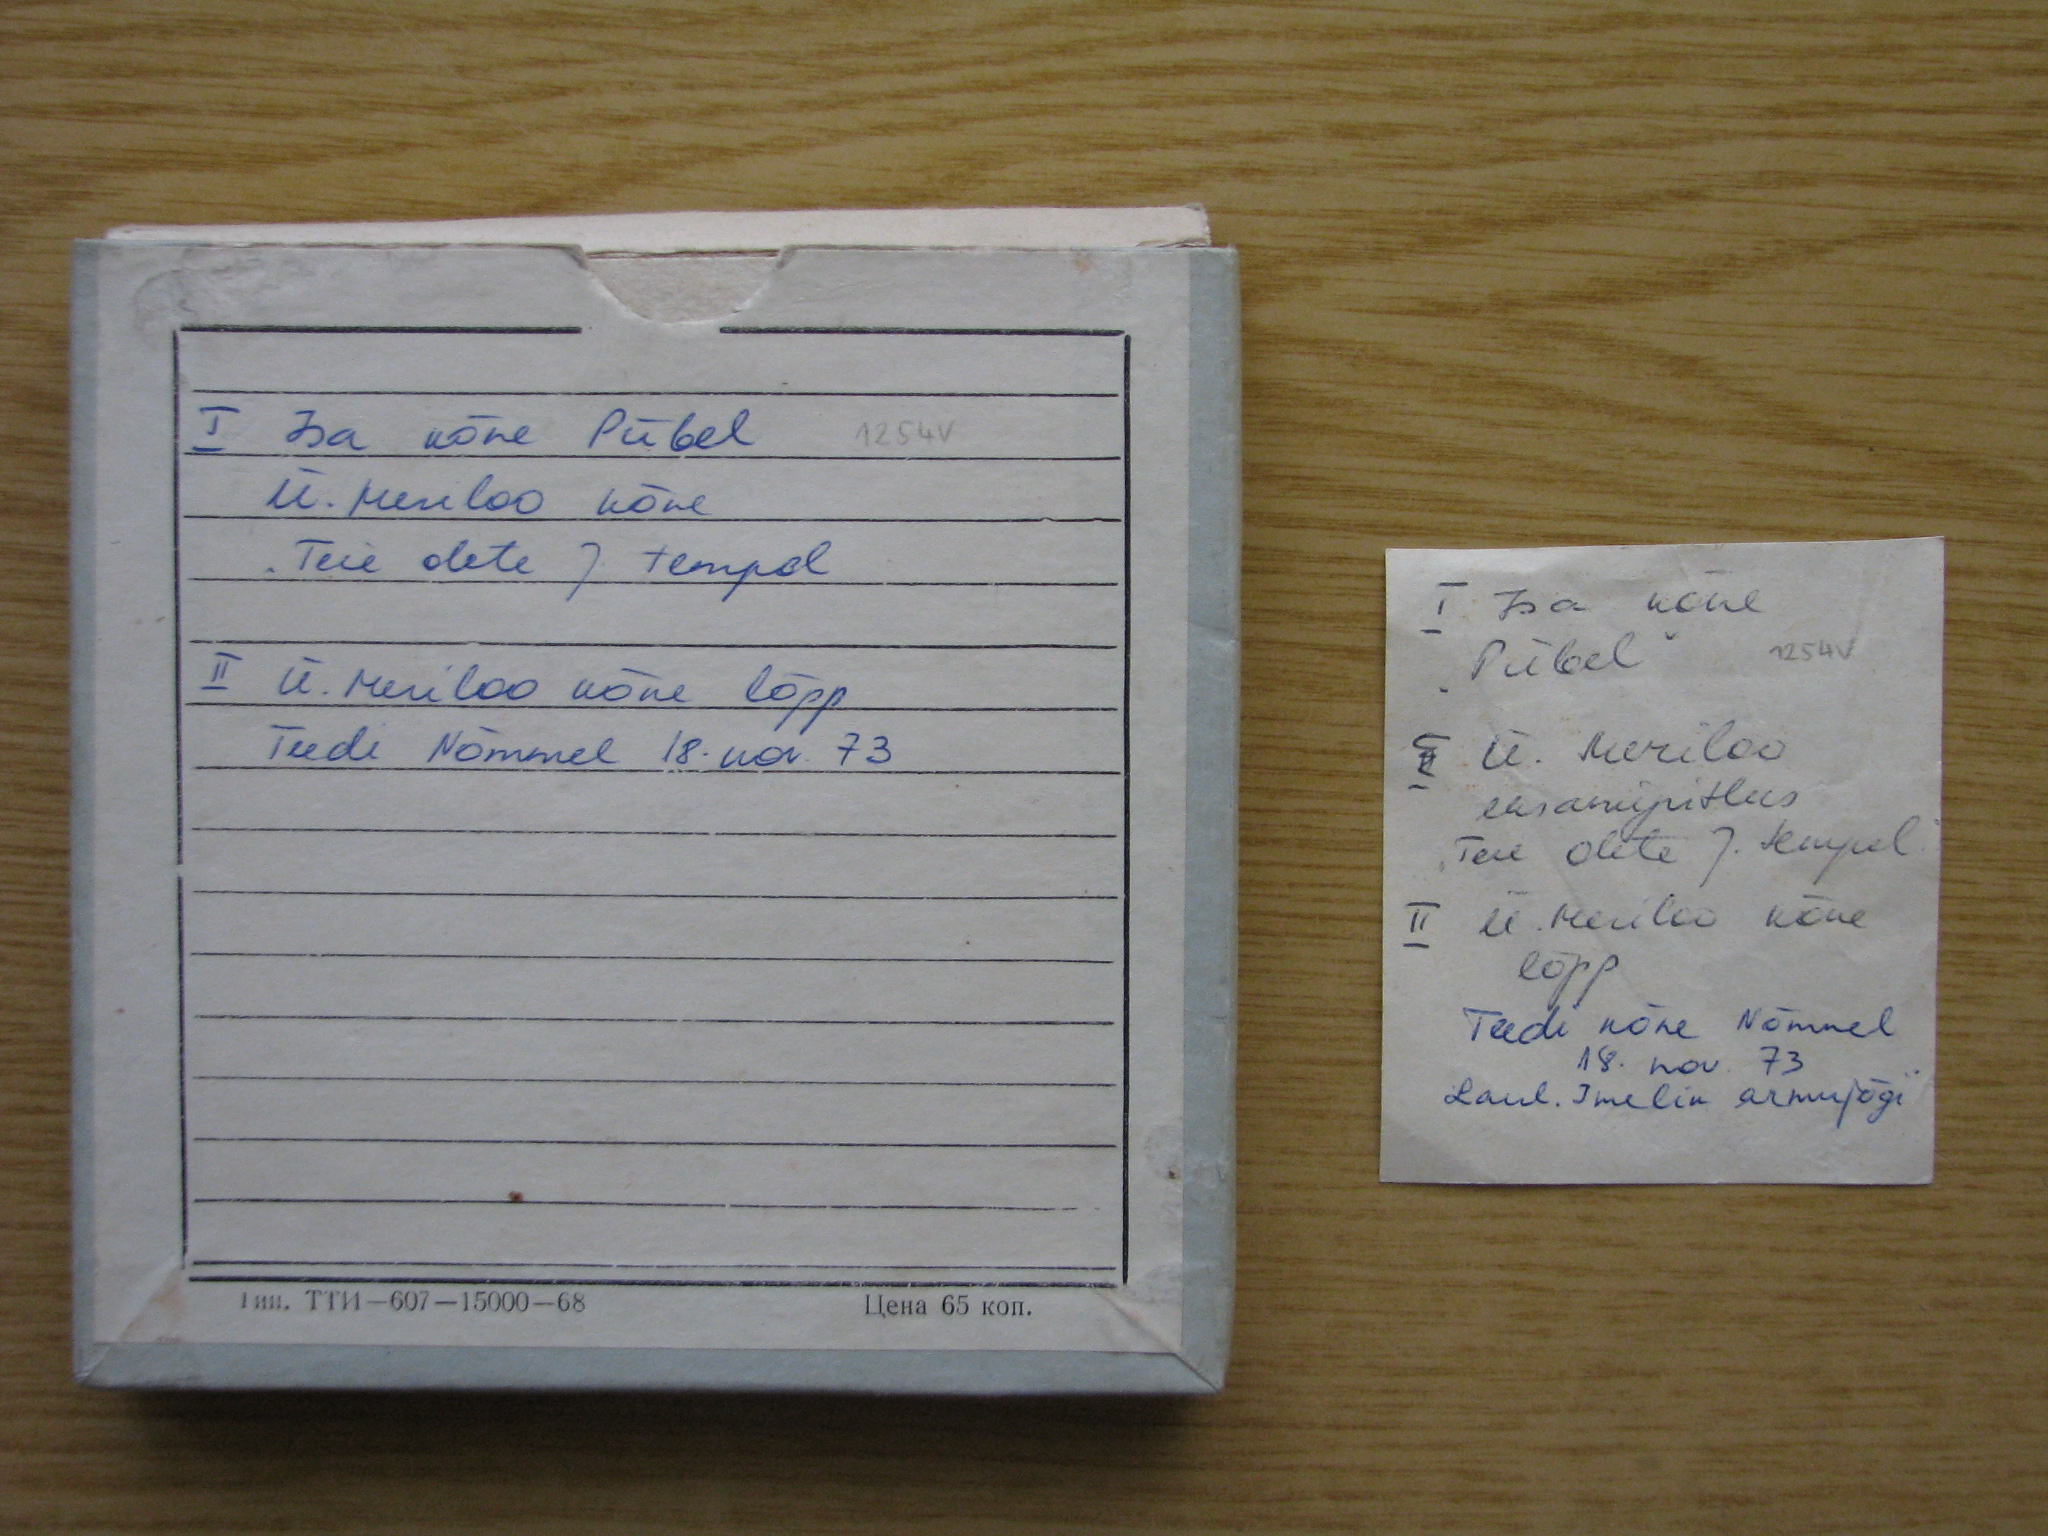 I Isa kõne Piibel 1254V
Ü. Meriloo kõne
„Teie olete J. tempel
II Ü. Meriloo kõne lõpp
Teedi Nõmmel 18. nov. 73
Тип. ТТИ—607—15000—68 Цена 65 коп.
I Isa kõne
„Piibel" 1254V
Ü. Meriloo
„Teie olete J. tempel"
II Ü. Meriloo kõne
lõpp
Teedi kõne Nõmmel
18. nov. 73
Laul. Imelik armujõgi"